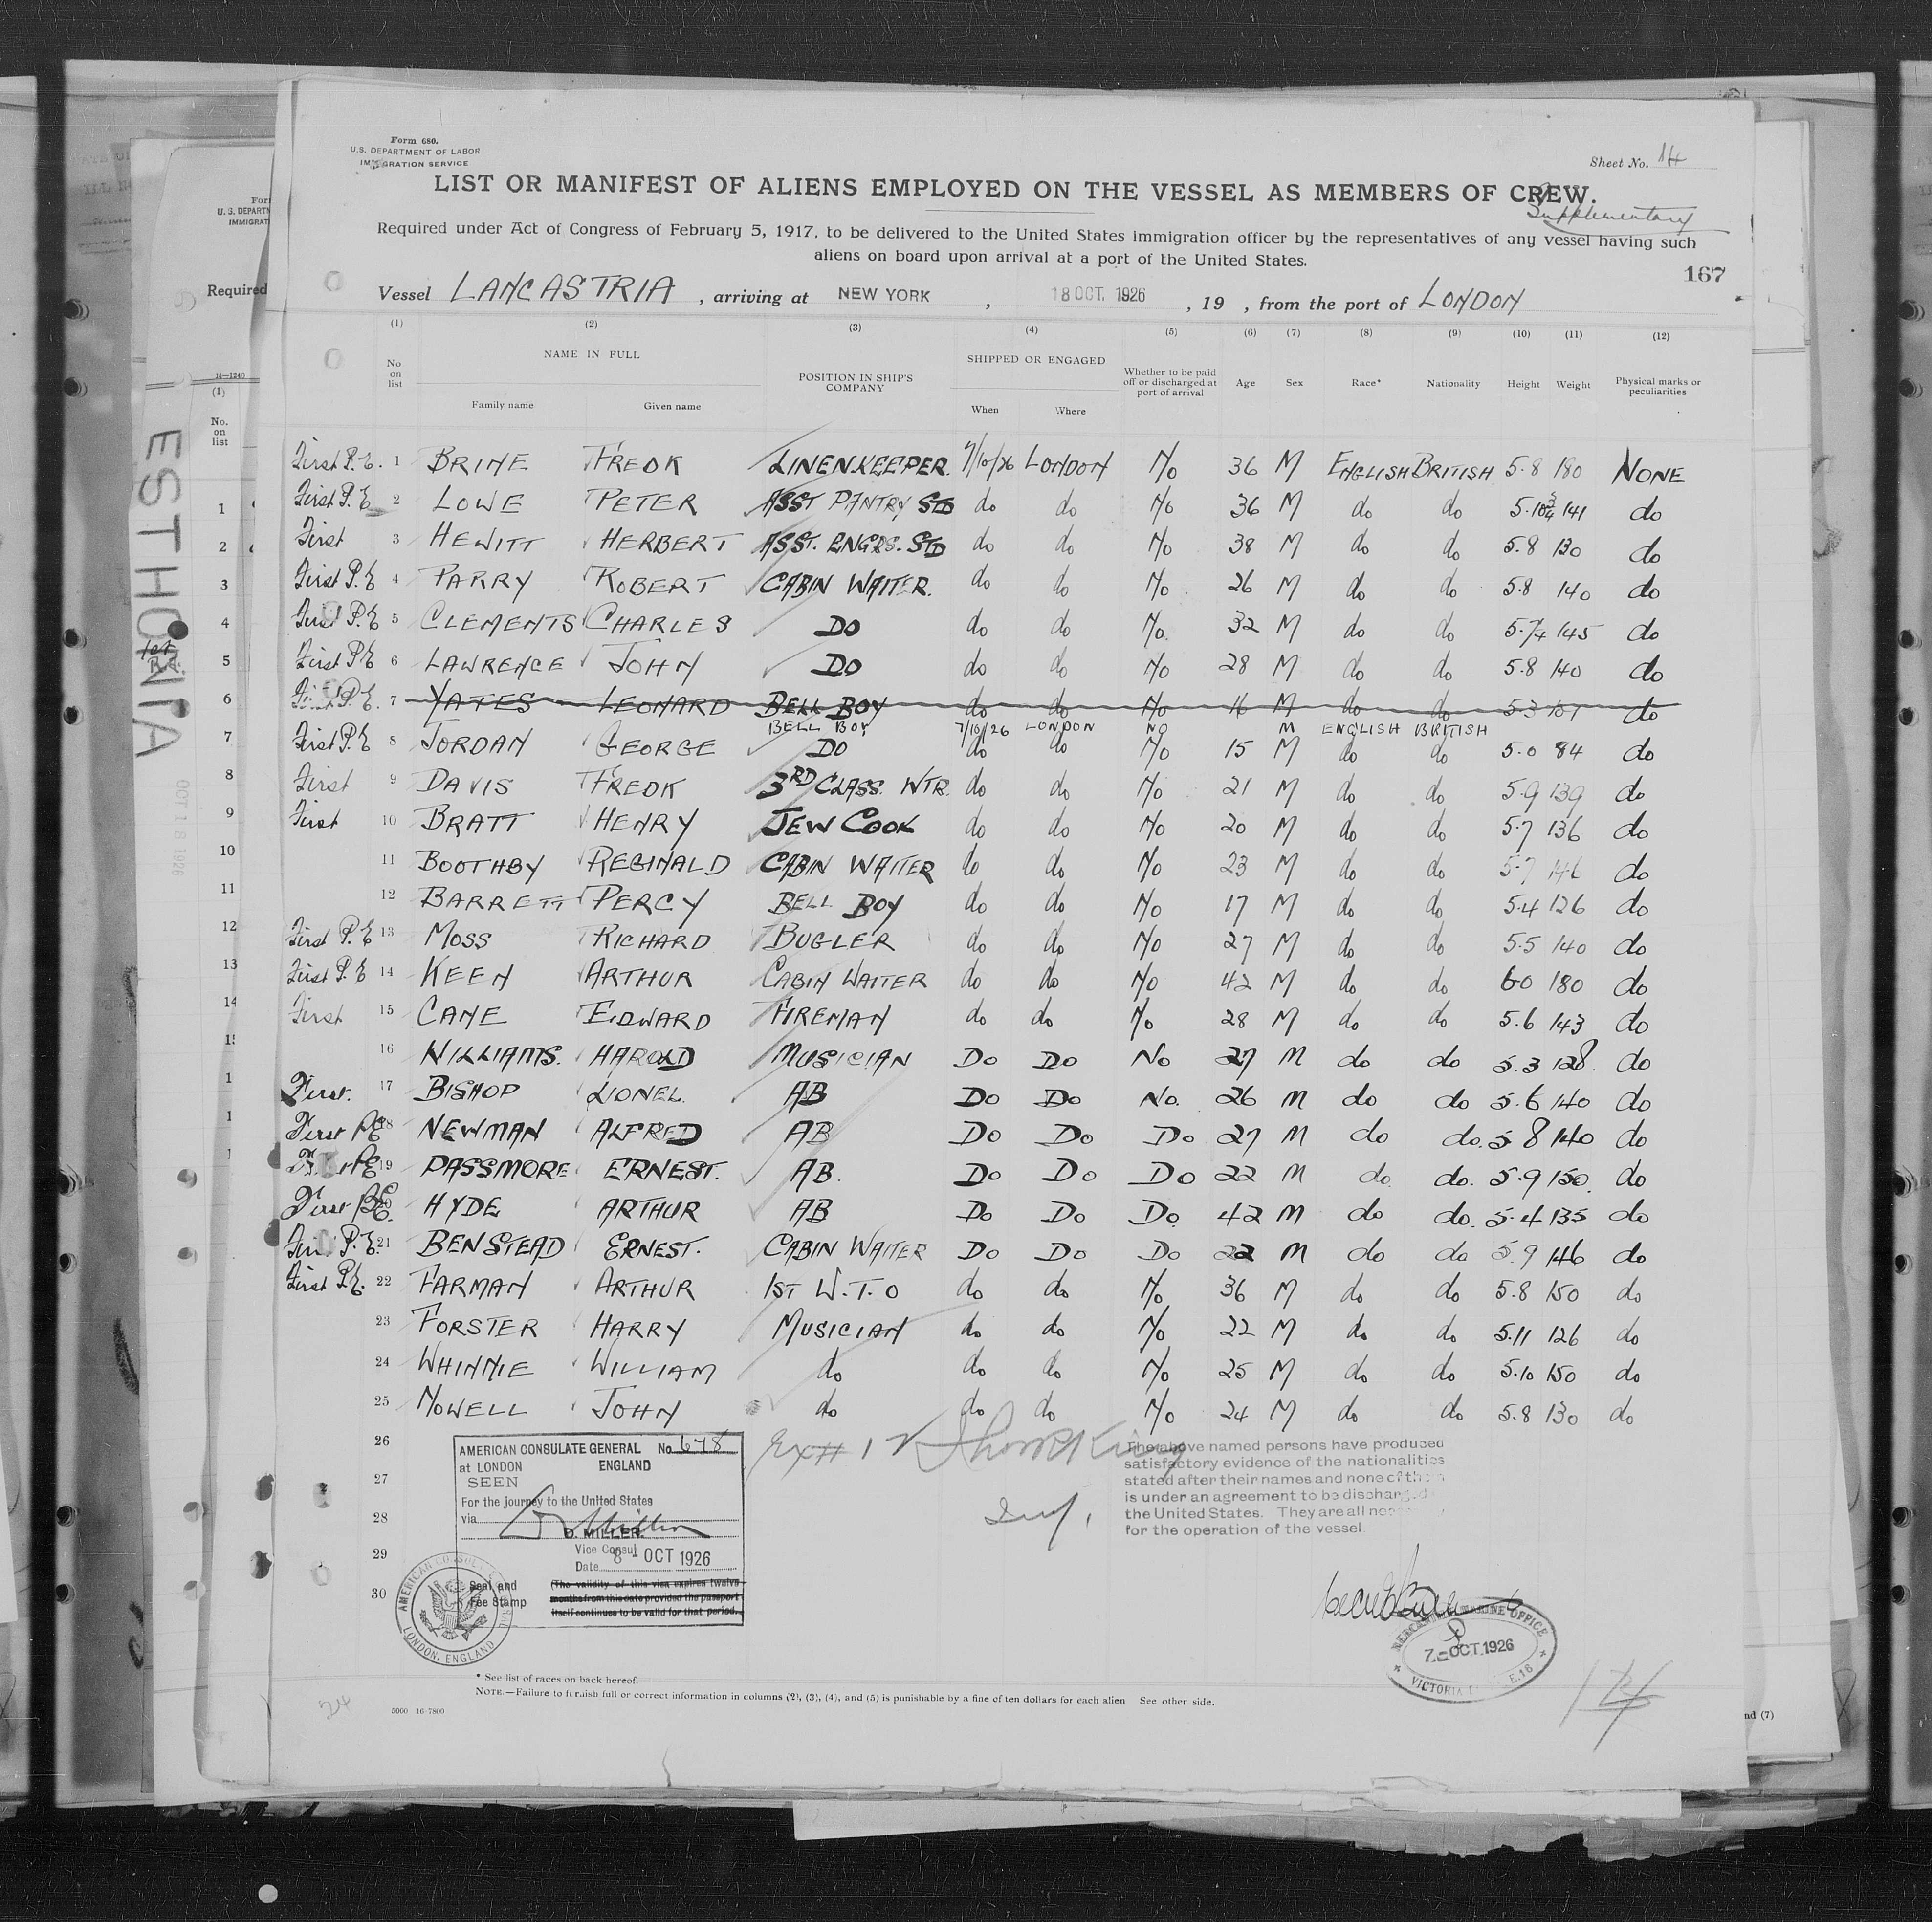 Form 680.
U.S. DEPARTMENT OF LABOR
IMMIGRATION SERVICE
Sheet No. 14
LIST OR MANIFEST OF ALIENS EMPLOYED ON THE VESSEL AS MEMBERS OF CREW.
Supplementary
Required under Act of Congress of February 5, 1917, to be delivered to the United States immigration officer by the representatives of any vessel having such
aliens on board upon arrival at a port of the United States.
167
Vessel LANCASTRIA , arriving at NEW YORK , 18 OCT. 1926 , 19 , from the port of LONDON
(1) (2) (3) (4) (5) (6) (7) (8) (9) (10) (11) (12)
No on list NAME IN FULL Family name Given name POSITION IN SHIP'S COMPANY SHIPPED OR ENGAGED When Where Whether to be paid off or discharged at port of arrival Age Sex Race* Nationality Height Weight Physical marks or peculiarities
First P.E. 1 BRINE FREDK LINENKEEPER. 7/10/26 LONDON No 36 M ENGLISH BRITISH 5.8 180 NONE
First P.E 2 LOWE PETER ASST PANTRY STD do do No 36 M do do 5.10 3/4 141 do
First 3 HEWITT HERBERT ASST. ENGRS. STD do do No 38 M do do 5.8 130 do
First P.E 4 PARRY ROBERT CABIN WAITER. do do No 26 M do do 5.8 140 do
First P.E 5 CLEMENTS CHARLES DO do do No. 32 M do do 145 do
First P.E 6 LAWRENCE JOHN DO do do No 28 M do do 5.8 140 do
First P.E. 7 YATES LEONARD BELL BOY do do No 16 M do do 5.3 107 do
BELL BOY 7/10/26 LONDON NO M ENGLISH BRITISH
First P.E 8 JORDAN GEORGE DO do do No 15 M do do 5.0 84 do
First 9 DAVIS FREDK 3RD CLASS. WTR. do do No 21 M do do 5.9 139 do
First 10 BRATT HENRY JEW COOK do do No 20 M do do 5.7 136 do
11 BOOTHBY REGINALD CABIN WAITER do do No 23 M do do 5.7 146 do
12 BARRETT PERCY BELL BOY do do No 17 M do do 5.4 126 do
First P.E 13 MOSS RICHARD BUGLER do do No 27 M do do 5.5 140 do
First P.E 14 KEEN ARTHUR CABIN WAITER do do No 42 M do do 60 180 do
First 15 CANE EDWARD FIREMAN do do No 28 M do do 5.6 143 do
16 WILLIAMS. HAROLD MUSICIAN DO DO No 27 M do do 5.3 128. do
First. 17 BISHOP LIONEL. AB DO DO No. 26 M do do 5.6 140 do
First PE 18 NEWMAN ALFRED AB DO DO DO 27 M do do. 5 8 140 do
First PE 19 PASSMORE ERNEST. AB. DO DO DO 22 M do. do. 5.9 150. do
First PE. 20 HYDE ARTHUR AB DO DO DO. 42 M do do. 5.4 135 do
First P.E. 21 BENSTEAD ERNEST. CABIN WAITER DO DO DO 22 M do do 5.9 146 do
First P.E. 22 FARMAN ARTHUR 1ST W.T.O do do No 36 M do do 5.8 150 do
23 FORSTER HARRY MUSICIAN do do No 22 M do do 5.11 126 do
24 WHINNIE WILLIAM do do do No 25 M do do 5.10 150 do
25 NOWELL JOHN do do do No 24 M do do 5.8 130 do
26
27
28
29
30
AMERICAN CONSULATE GENERAL No 678
at LONDON ENGLAND
SEEN
For the journey to the United States
via
D. MILLER.
Vice Consul
Date 8 - OCT 1926
Seal and
Fee Stamp
(The validity of this visa expires twelve
months from this date provided the passport
itself continues to be valid for that period.
AMERICAN CONSULATE GENERAL
LONDON, ENGLAND
The above named persons have produced
satisfactory evidence of the nationalities
stated after their names and none of them
is under an agreement to be discharged
the United States. They are all
for the operation of the vessel.
MERCANTILE MARINE OFFICE
7 - OCT. 1926
VICTORIA E.16
14
* See list of races on back hereof.
NOTE.—Failure to furnish full or correct information in columns (2), (3), (4), and (5) is punishable by a fine of ten dollars for each alien See other side.
5000 16-7800
24
nd (7)
ESTHONIA
OCT 18 1926
Form
U. S. DEPARTM
IMMIGRAT
Required
14-1240
(1)
No. on list
1
2
3
4
5
6
7
8
9
10
11
12
13
14